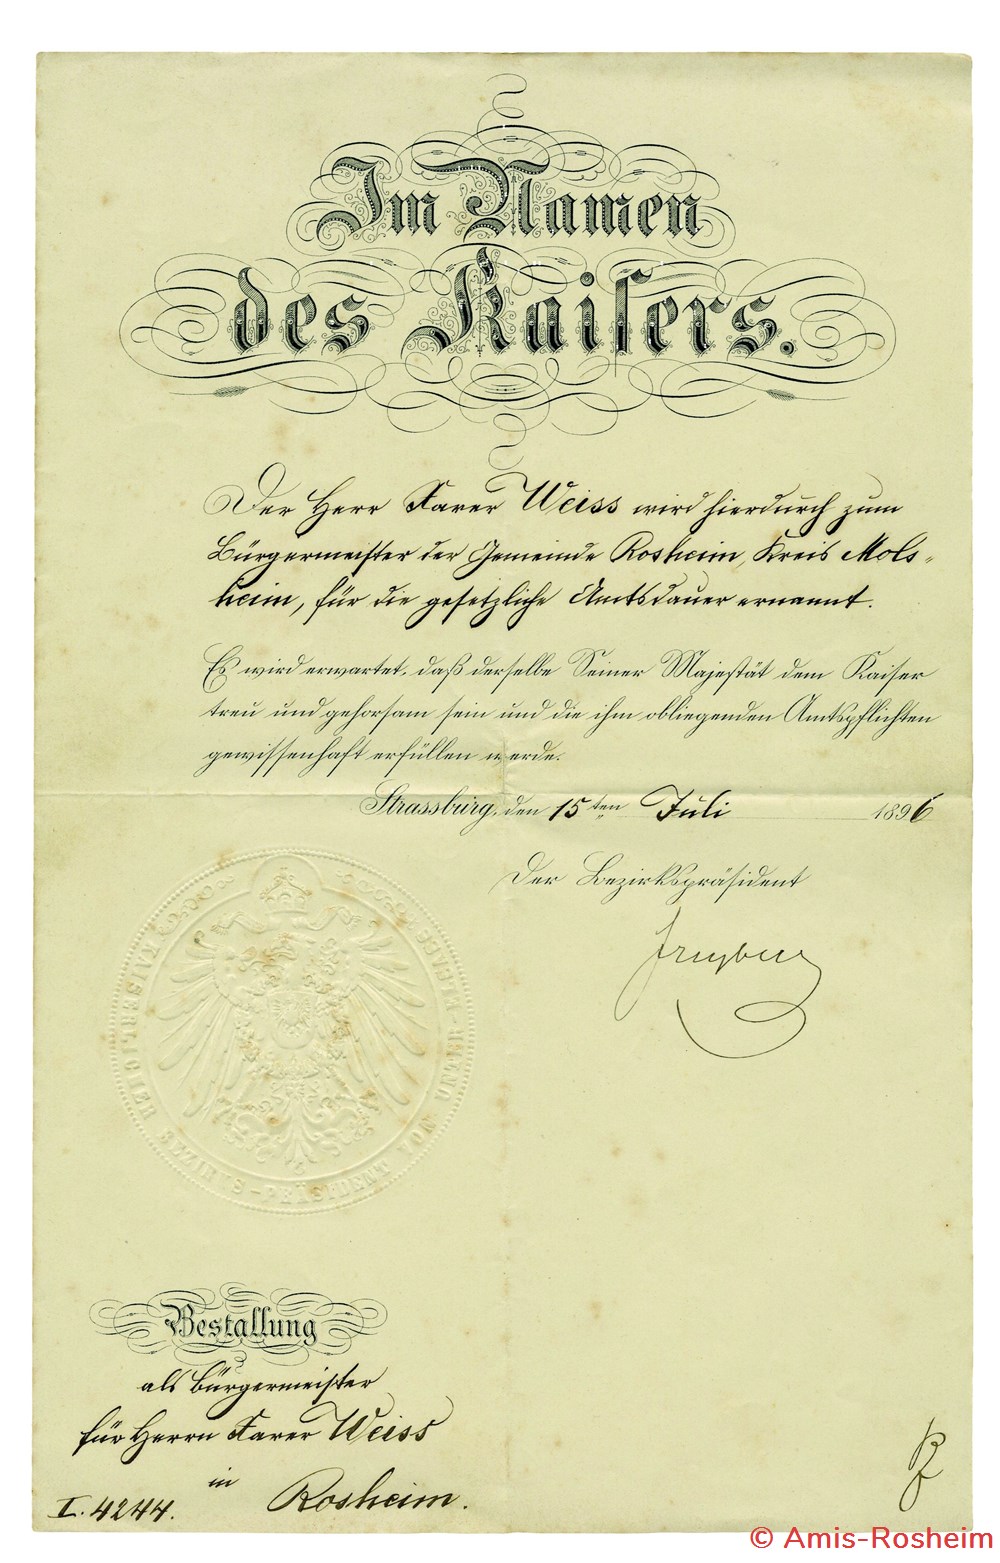 Im Namen
des Kaisers.
Der Herr Xaver Weiss wird hierdurch zum
Bürgermeister der Gemeinde Rosheim, Kreis Mols-
heim, für die gesetzliche Amtsdauer ernannt.
Es wird erwartet, daß derselbe Seiner Majestät dem Kaiser
treu und gehorsam sein und die ihm obliegenden Amtspflichten
gewissenhaft erfüllen werde.
Strassburg, den 15ten Juli 1896
Der Bezirkspräsident
Freyberg
KAISERLICHER BEZIRKS-PRÄSIDENT VON UNTER-ELSASS
Bestallung
als Bürgermeister
für Herrn Xaver Weiss
in Rosheim.
I. 4244.
© Amis-Rosheim